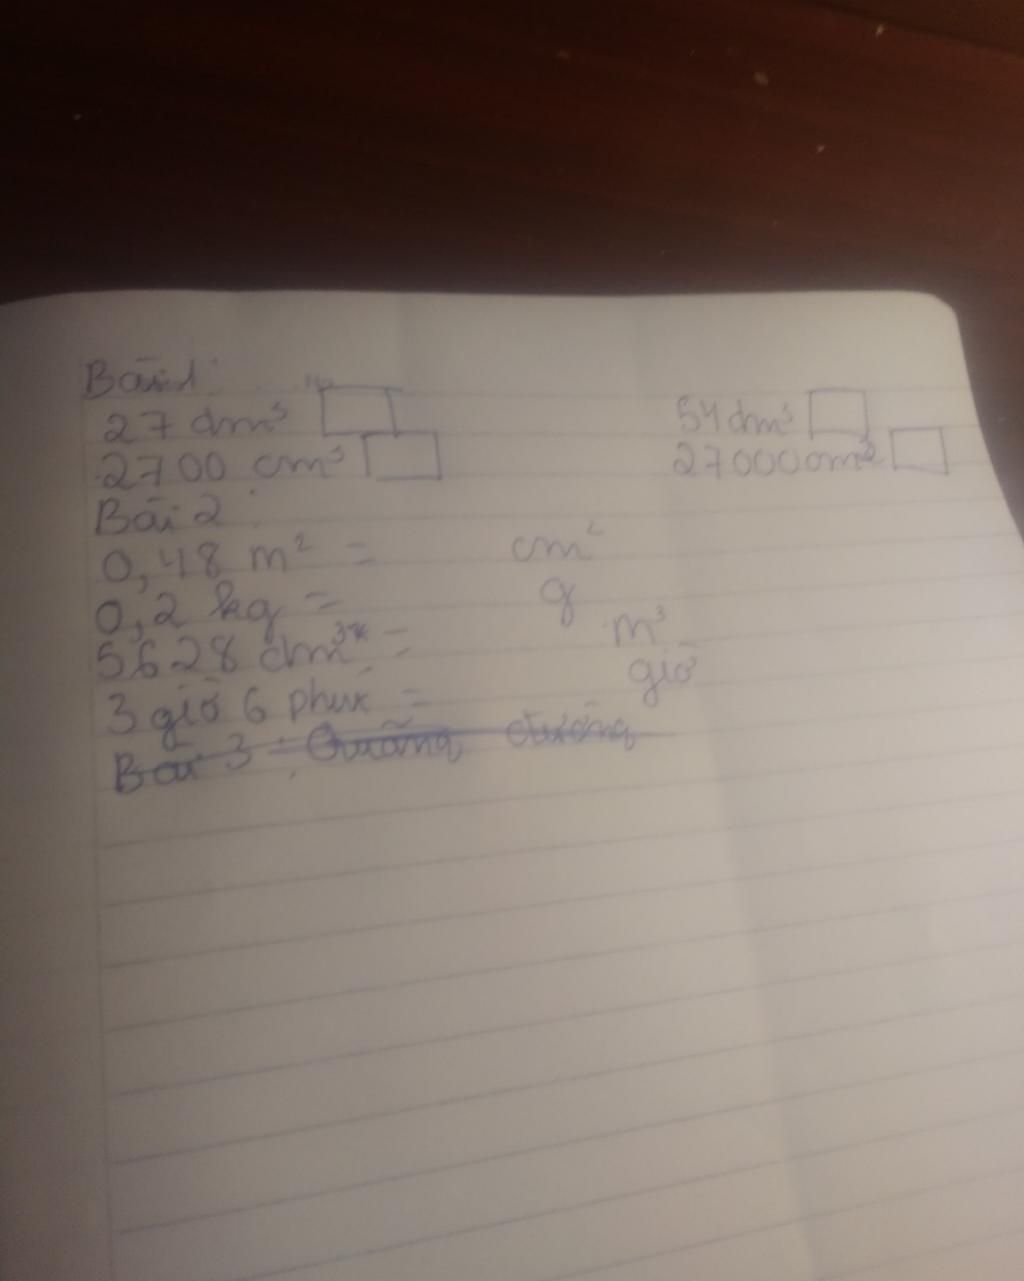 Bài 1:
27 dm³ 54 dm³
2700 cm³ 27000cm³
Bài 2:
0,48 m² = cm²
0,2 kg = g
5628 dm³ = m³
3 giờ 6 phút = giờ
Bài 3: Quãng đường